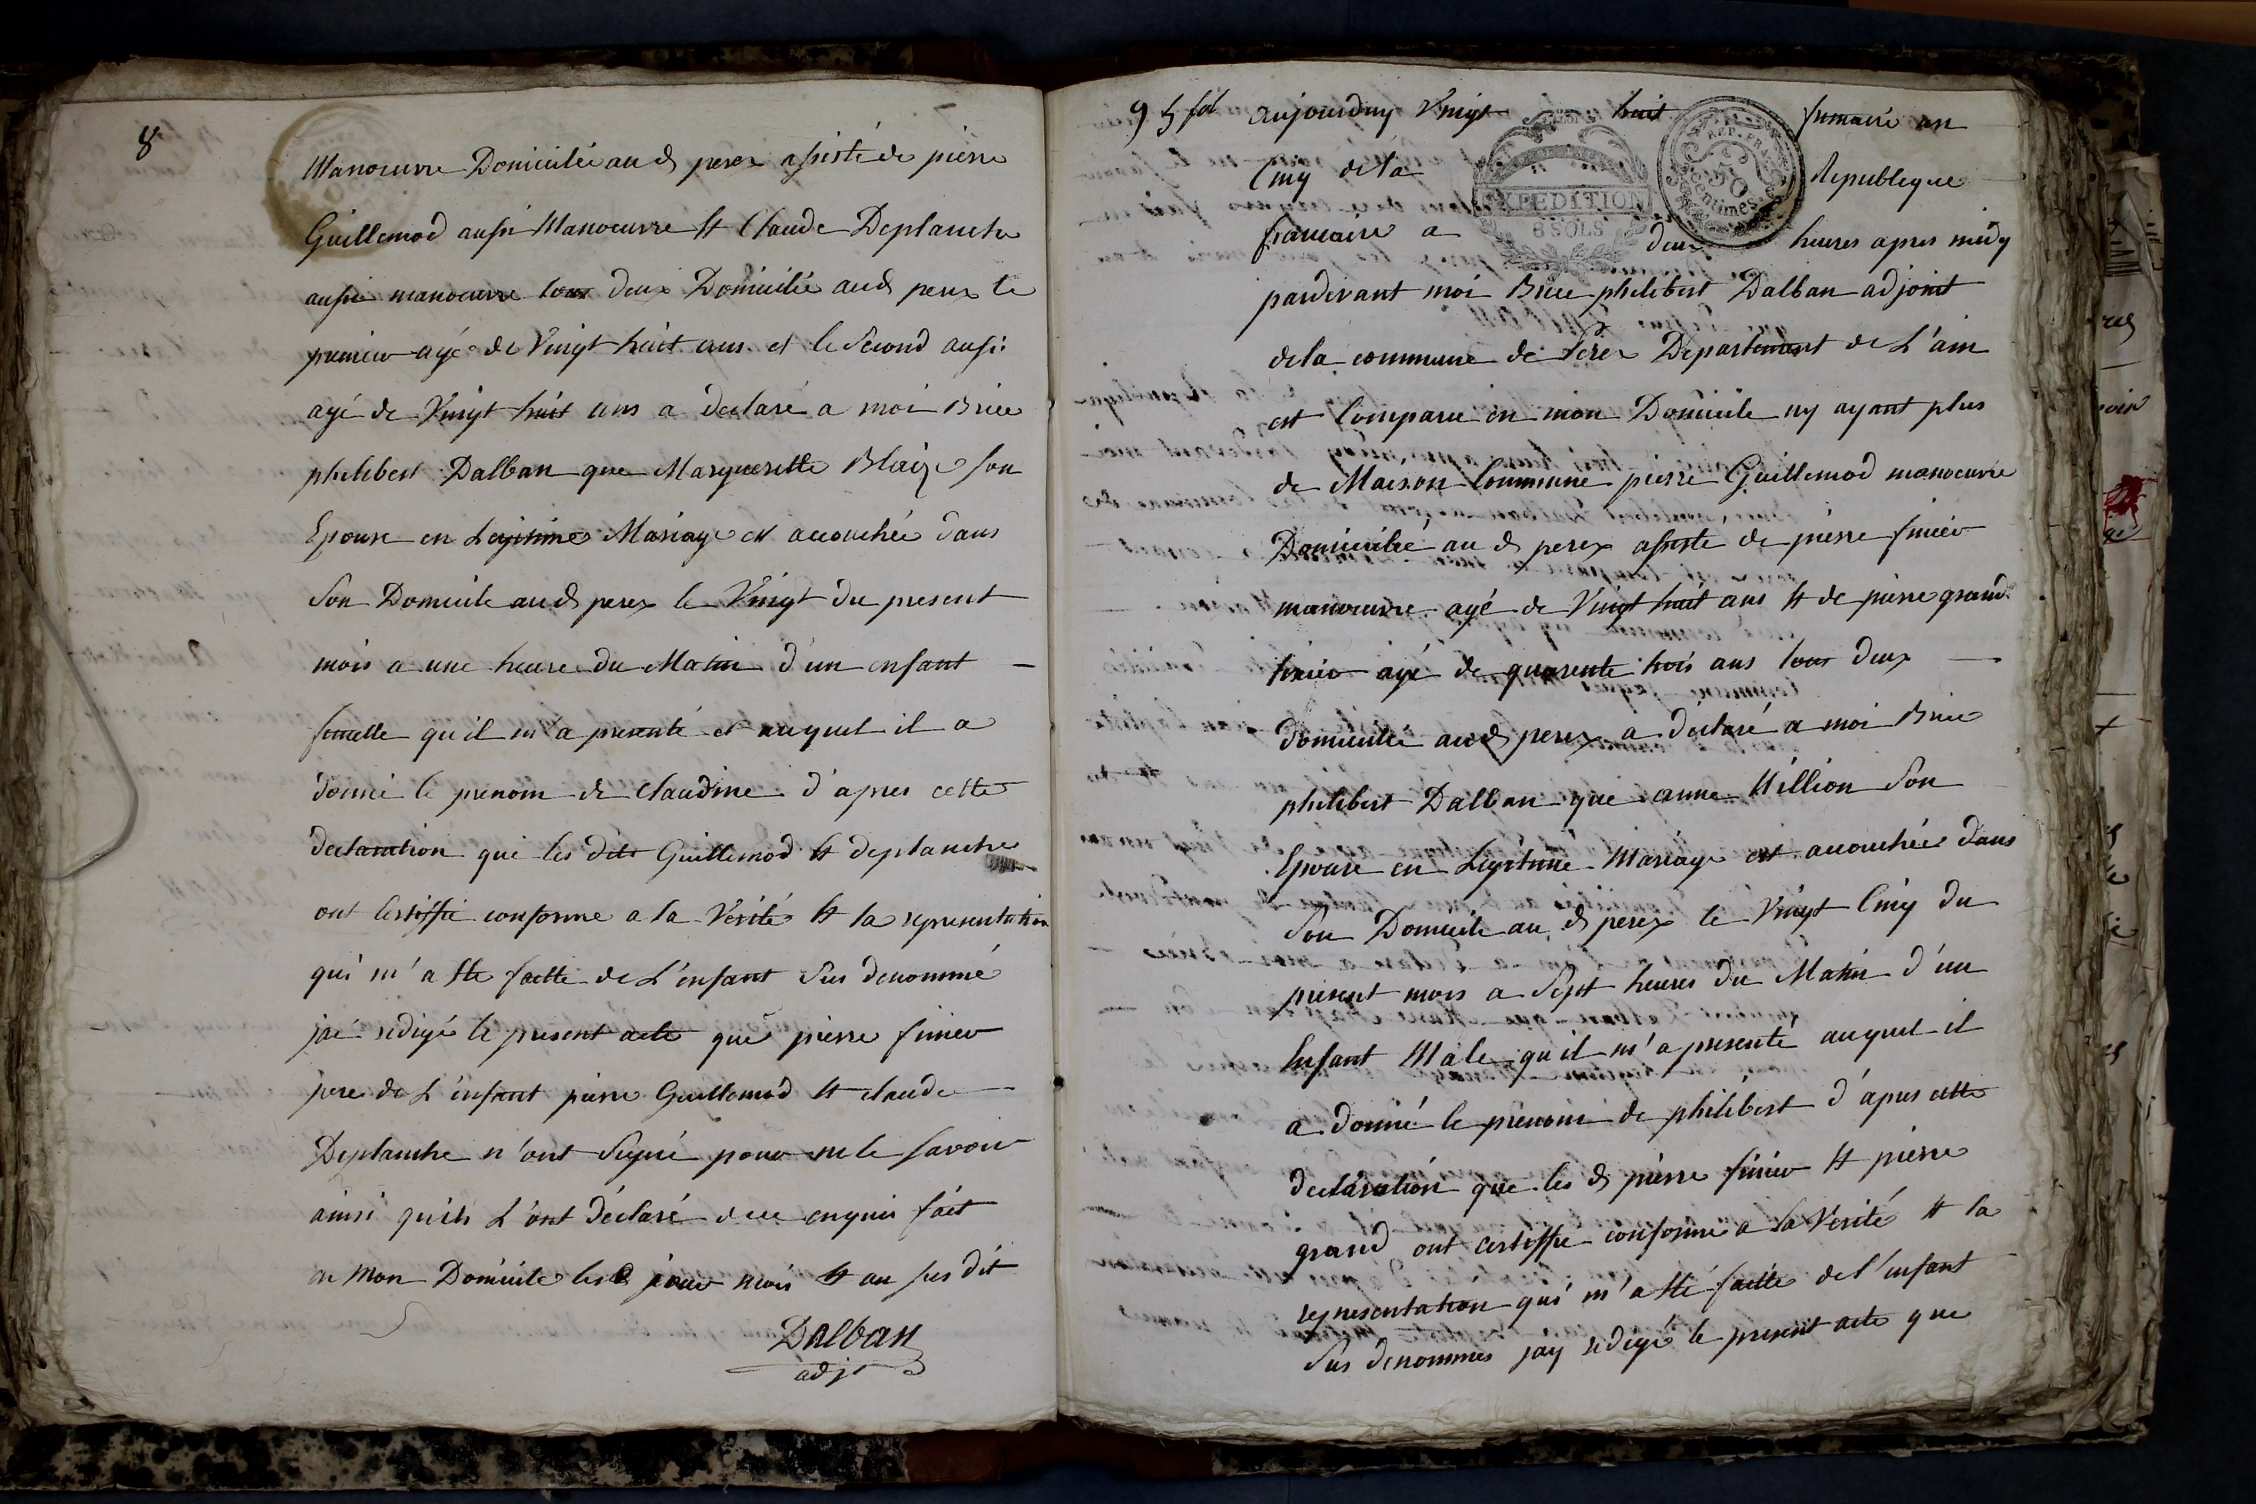 8
Manoeuvre Domicilié au d perex assisté de pierre
Guillemod aussi Manoeuvre et Claude Deplanche
aussi manoeuvre tous deux Domicilié aud perex le
premier agé de Vingt huit ans et le Second aussi
agé de Vingt huit ans a declaré a moi Brice
philibert Dalban que Marguerette Blaize son
Epouse en Legitime Mariage est accouchée dans
Son Domicile aud perex le Vingt du present
mois a une heure du Matin d'un enfant
femelle qu'il m'a presenté et auquel il a
donné le prenom de Claudine d'apres cette
declaration que les dits Guillemod et deplanche
ont Certiffié conforme a la Verité et la representation
qui m'a eté faitte de L'enfant Sus denommé
jai redigé le present acte que pierre finier
pere de L'enfant pierre Guillemod et claude
Deplanche n'ont Signé pour ne le Savoir
ainsi quils L'ont déclaré de ce enquis fait
en Mon Domicile les d jour mois et an sus dit
Dalban
adjt
9 5 fol aujourdhuy Vingt huit frimaire an
Cinq de la Republique
francaise a deux heures apres midy
EXPEDITION
8 SOLS
REP. FRA
50
centimes
pardevant moi Brice philibert Dalban adjoint
dela commune de Perex Departement de L'ain
est Comparu en mon Domicile ny ayant plus
de Maison Commune pierre Guillemod manoeuvre
Domicilié au d perex assisté de pierre finier
manoeuvre agé de Vingt huit ans et de pierre grand
finier agé de quarente trois ans tous deux
domicilié aud perex a déclaré a moi Brice
philibert Dalban que anne Million Son
Epouse en Legitime Mariage est accouchée dans
Son Domicile au d perex le Vingt Cinq du
present mois a Sept heures du Matin d'un
Enfant Male qu'il m'a presenté auquel il
a donné le prenom de philibert d'apres cette
declaration que les d pierre finier et pierre
grand ont certiffie conforme a la Verité et la
representation qui m'a eté faitte de l'enfant
Sus denommés jay redigé le present acte que